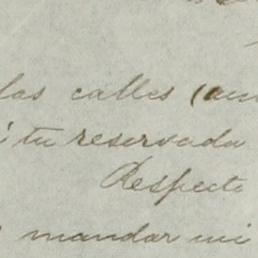 las calles (aun
i tu reservada
Respecto
mandar mi